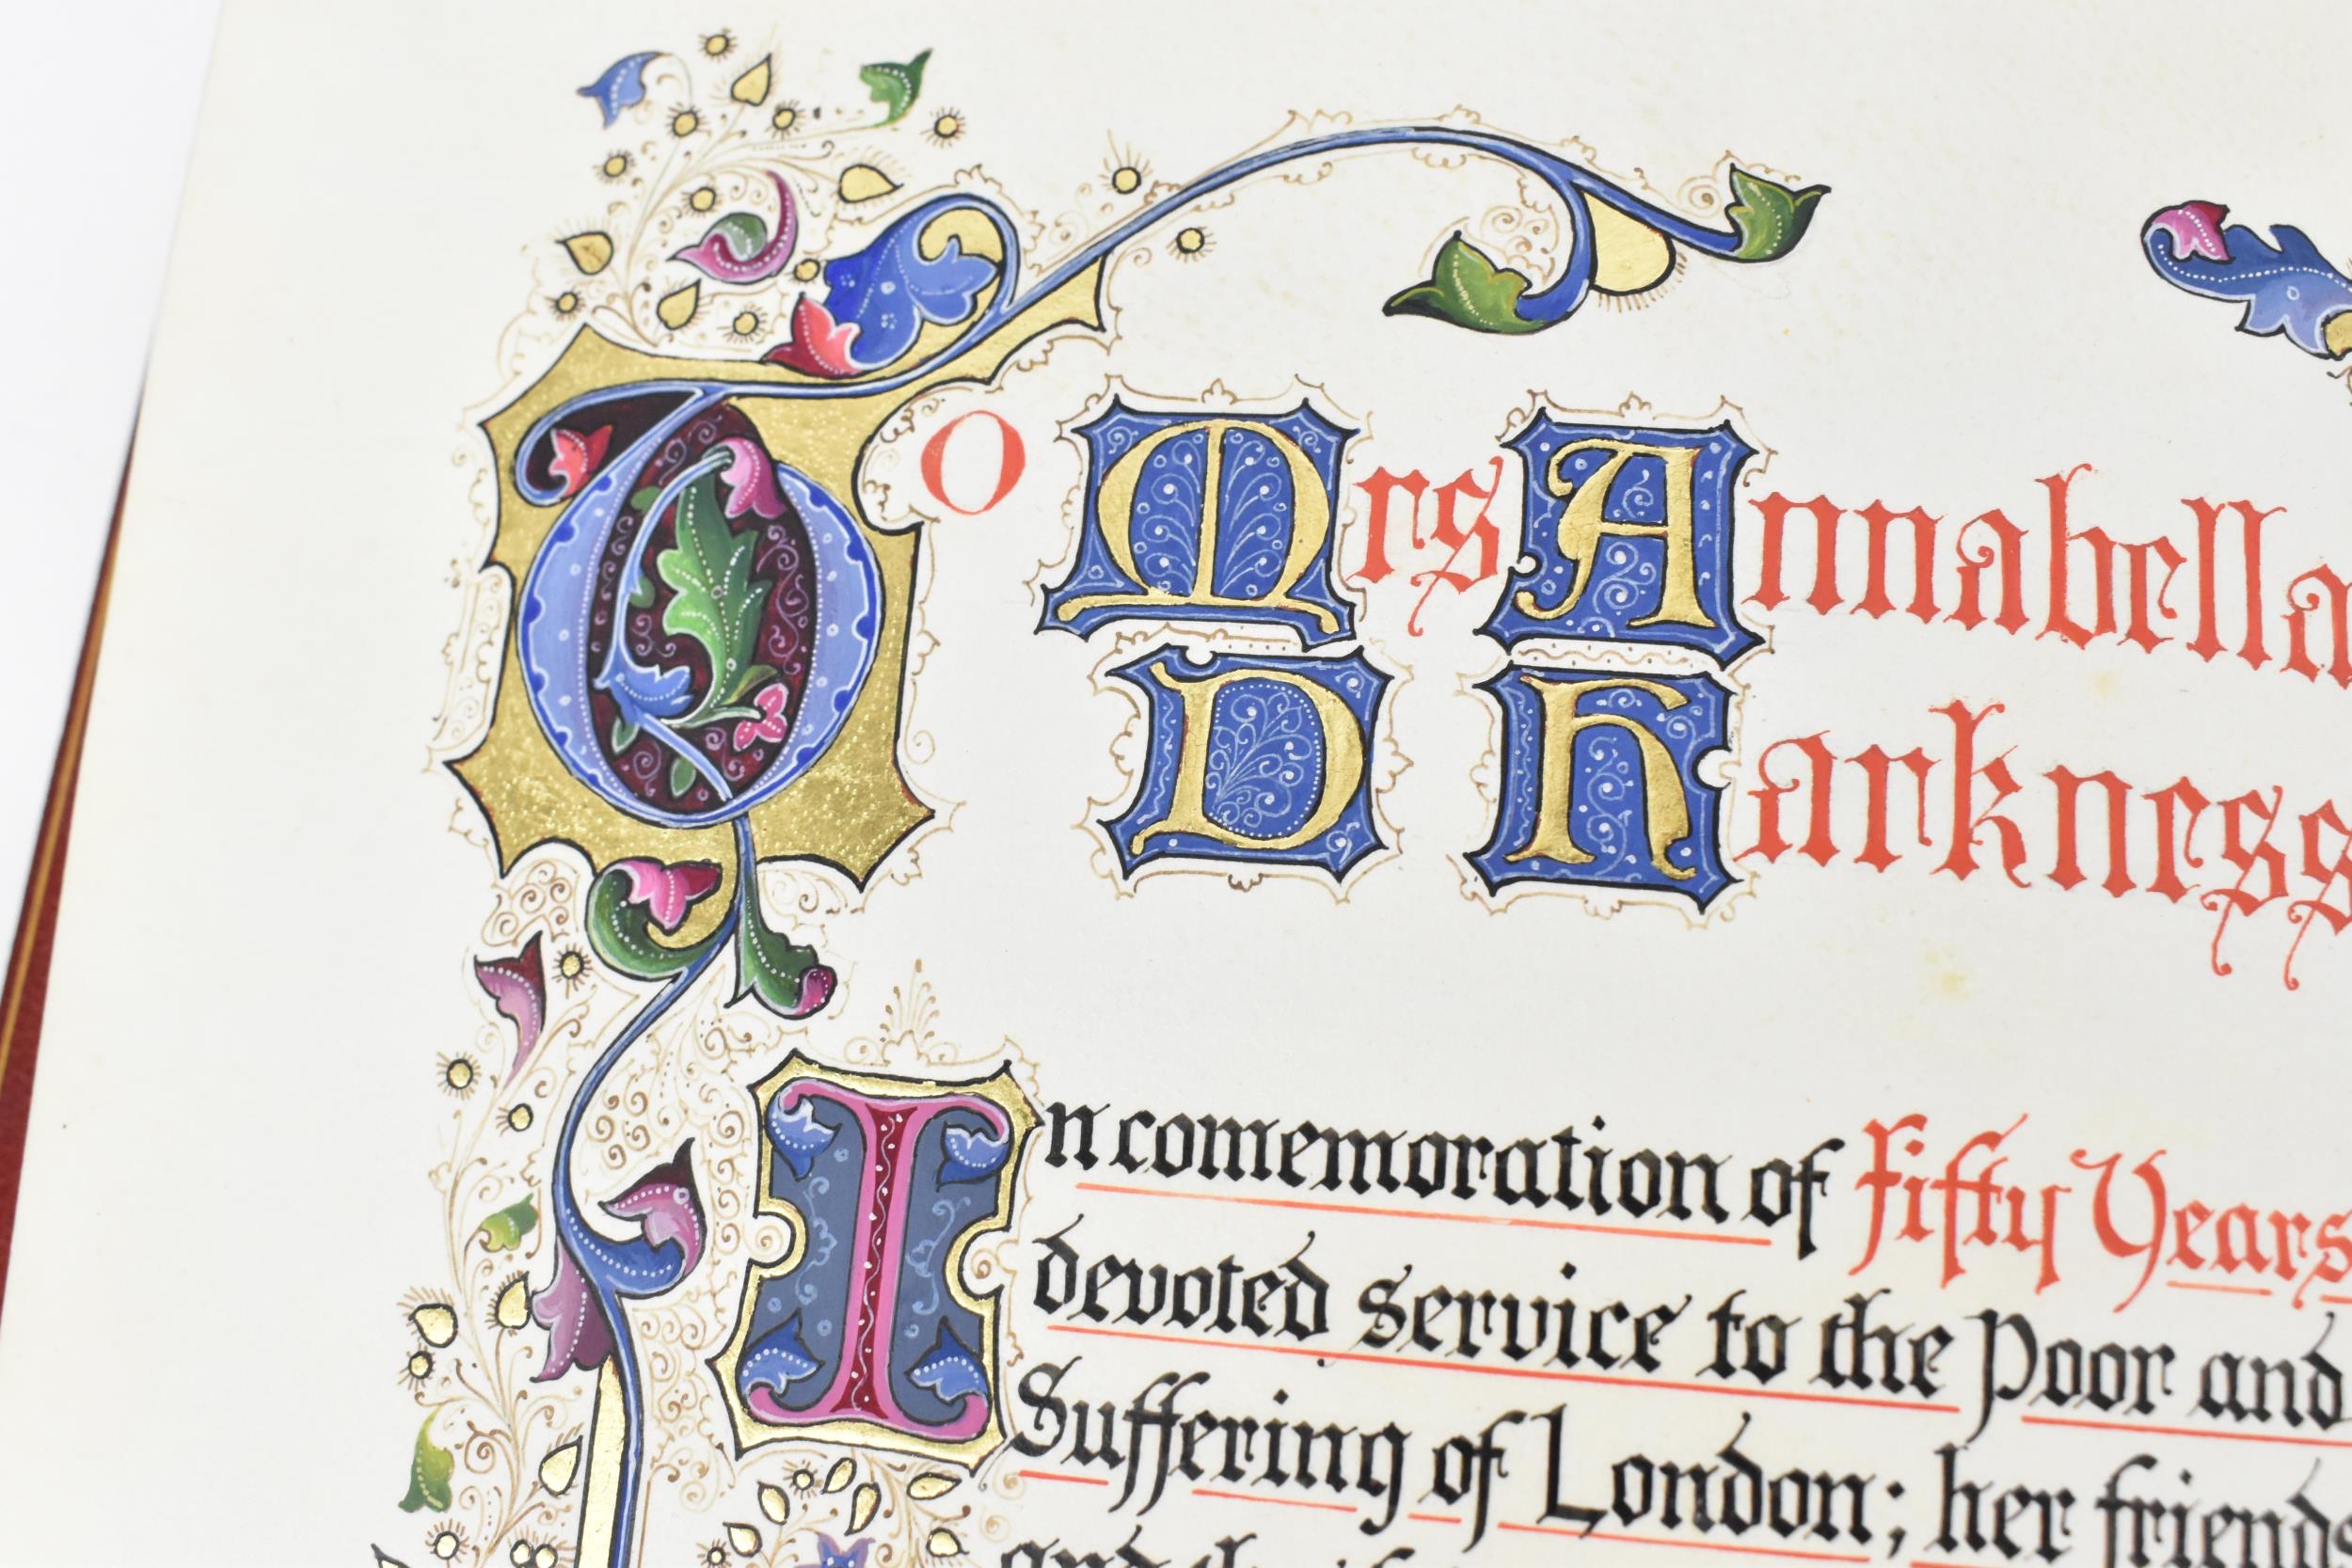 To Mrs Annabella
D Harkness
In comemoration of Fifty Years
devoted service to the Poor and
Suffering of London; her friends